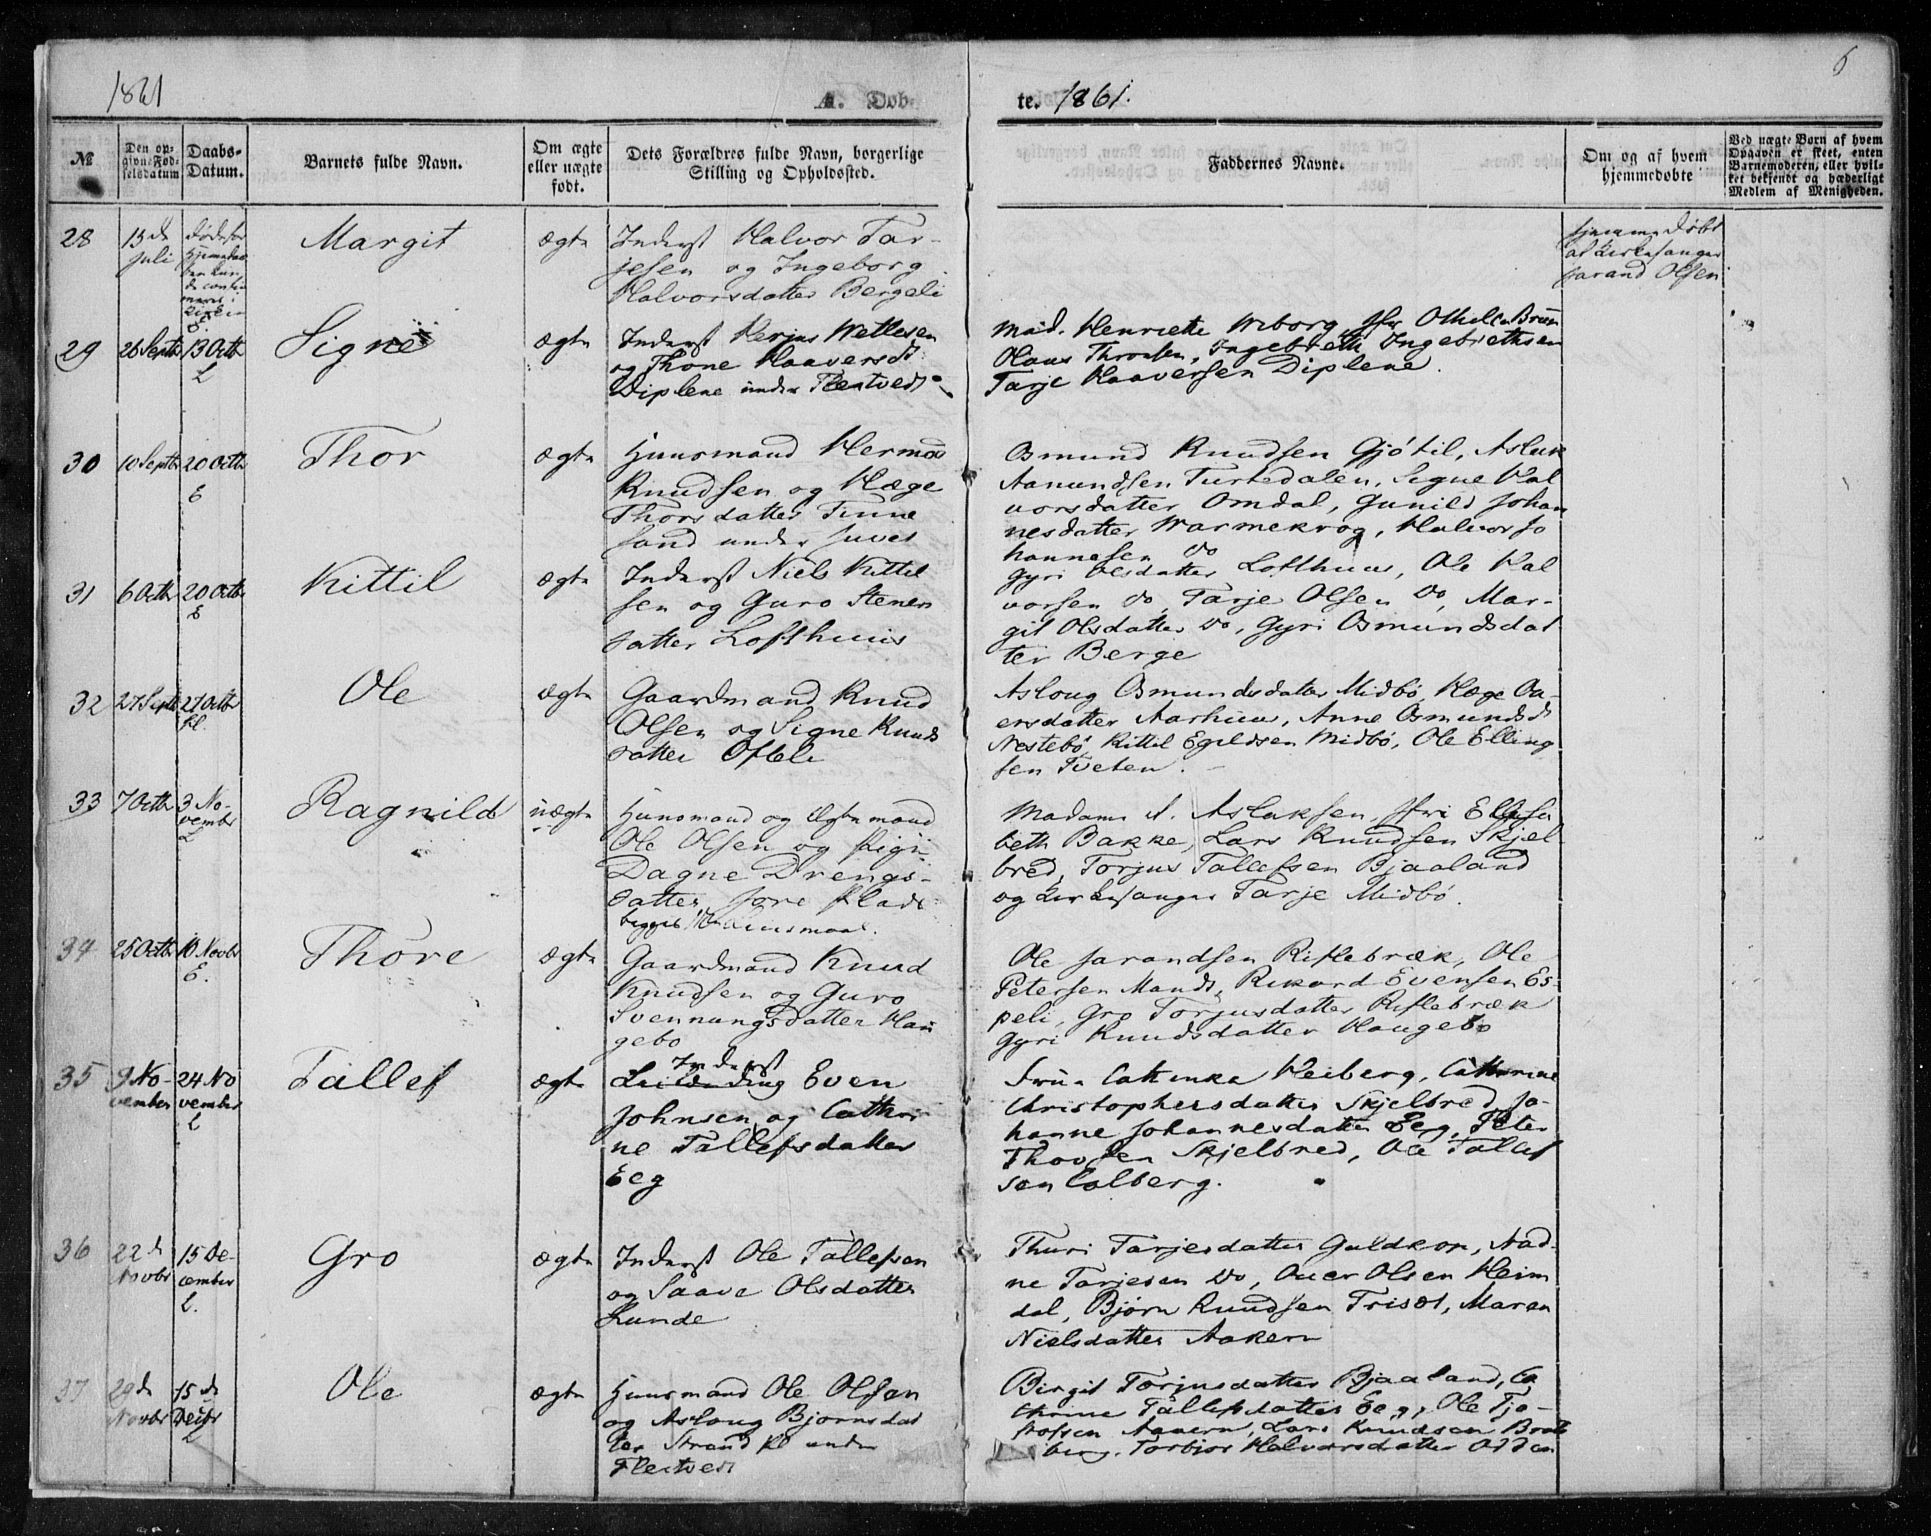 1861
A. Døb-
te. 1861.
6
№
Den op-
givne Fød-
selsdatum
Daabs-
Datum.
Barnets fulde Navn.
Om ægte
eller uægte
født.
Dets Forældres fulde Navn, borgerlige
Stilling og Opholdssted.
Faddernes Navne.
Om og af hvem
hjemmedøbte
Ved uægte Børn af hvem
Opgaven er skeet, enten
Barnemoderen, eller hvil-
ket bekjendt og hæderligt
Medlem af Menigheden.
28
13de
Juli
Døde før
Margit
ægte
Inderst Halvor Tar-
jesen og Ingeborg
Halvorsdatter Bergeli
hjemmedøbt
af Kirkesanger
Jarand Olsen
29
26 Septbr
13 Octbr
L
Signe
ægte
Inderst Herjus Wetlesen
og Thone Haaversd.
Diplene under Flentvedt
Mad. Henriette Wiborg, Jfr Othilia Bruun
Hans Thronsen, Ingebreth Ingebrethsen
Tarje Haaversen Diplene.
30
10 Septbr
20 Octbr
E
Thor
ægte
Huusmand Hermod
Knudsen og Hæge
Thorsdatter Finne
sand under Juvet
Osmund Knudsen Gjøtil, Aslak
Aanundsen Turtedalen, Signe Hal
vorsdatter Omdal, Gunild Johan
nesdatter Warmekrog, Halvor Jo
hannesen do
31
6 Octbr
20 Octbr
E
Kittil
ægte
Inderst Niels Kittil
sen og Guro Steners
datter Lofthuus
Gyri Olsdatter Lofthuus, Ole Hal
vorsen do, Tarje Olsen do, Mar-
git Olsdatter do, Gyri Osmundsdat
ter Berge
32
27 Septbr
27 Octbr
fl.
Ole
ægte
Gaardmand Knud
Olsen og Signe Knuds
datter Ofteli
Asloug Osmundsdatter Midbø, Hæge On-
ersdatter Aarhuus, Anne Osmundsd
Nestebø, Kittil Egildsen Midbø, Ole Elling
sen Tveten.
33
7 Octbr
3 No-
vembr
L
Ragnild
uægte
Huusmand og Ægtemand
Ole Olsen og Pige
Dagne Drengs-
datter, Jore Plads
begges Leiermaal.
Madame A. Aslaksen, Jfr Elisa
beth Bakke, Lars Knudsen Skjel-
bred, Torjus Tallefsen Bjaaland
og Kirkesanger Tarje Midbø.
34
25 Octbr
10 Novbr
E.
Thore
ægte
Gaardmand Knud
Knudsen og Guro
Svennungsdatter Hau
gebo
Ole Jarandsen Riflebræk, Ole
Petersen Mandt, Rikord Evensen Es-
peli, Gro Torjusdatter Riflebræk
Gyri Knudsdatter Haugebo
35
9 No-
vember
24 No
vember
L
Tallef
ægte
Inderst
Leilænding Even
Johnsen og Cathri
ne Tallefsdatter
Eeg
Fru Cathinka Heiberg, Cathrine
Christophersdatter Skjelbred, Jo-
hanne Johannesdatter Eeg, Peter
Thovsen Skjelbred, Ole Tallef
sen Colberg.
36
22 d
Novbr
15 De-
cember
L.
Gro
ægte
Inderst Ole Tallefsen
og Saave Olsdatter
Lunde
Thuri Tarjesdatter Guldkop, Aad-
ne Tarjesen do, Ouer Olsen Heim
dal, Bjørn Knudsen Trisæt, Maren
Nielsdatter Aakern
37
29 d
Novbr
15 d
Decbr
L
Ole
ægte
Huusmand Ole Olsen
og Asloug Bjornsdat
ter Strand pl under
Flentvedt
Birgit Torjusdatter Bjaaland, Ca
thrine Tallefsdatter Eeg, Ole Tjo-
stofsen Aavern, Lars Knudsen Brat
berg, Torbior Halvorsdatter Odden